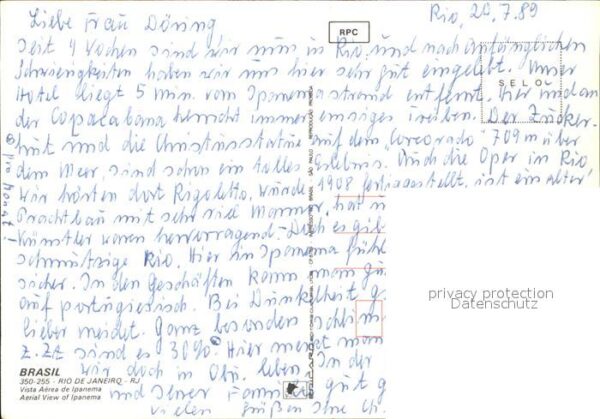 Rio, 20.7.89
RPC
Liebe Frau Döring
seit 4 Wochen sind wir nun in Rio und nach anfänglichen
Schwierigkeiten haben wir uns hier sehr gut eingelebt. Unser
SELO
Hotel liegt 5 min. vom Ipanemastrand entfernt. Hier und an
der Copacabana herrscht immer emsiges Treiben. Der Zucker-
hut und die Christusstatue auf dem "Corcorado" 709 m über
dem Meer, sind schon ein tolles Erlebnis. Auch die Oper in Rio
wir hörten dort Rigoletto, wurde 1908 fertiggestellt, ist ein alter
Prachtbau mit sehr viel Marmor, hat
Künstler waren hervorragend - Doch es gib
schmutzige Rio. Hier in Ipanema fühl
sicher. In den Geschäften kann man
auf portugiesisch. Bei Dunkelheit
lieber meidet. Ganz besonders schli
z. Zt sind es 30%. Hier merkt man
wir doch in leben. In der
und seiner gut
vielen Grüßen Ihre
privacy protection
Datenschutz
BRASIL
350-255 - RIO DE JANEIRO - RJ
Vista Aérea de Ipanema
Aerial View of Ipanema